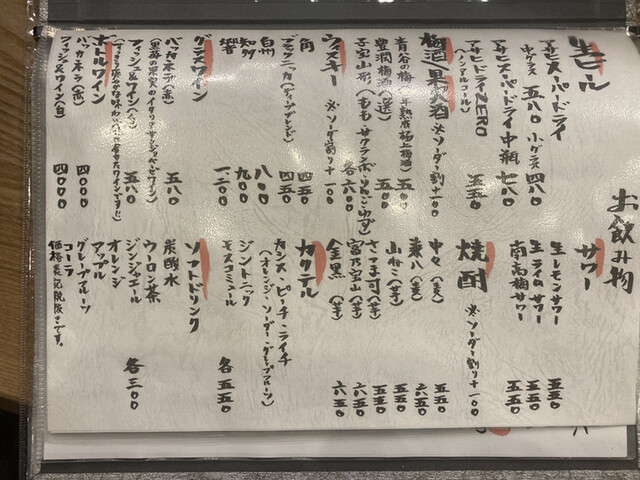 お飲み物
生ビール
アサヒスーパードライ
中グラス 五八〇 小グラス 四八〇
アサヒスーパードライ中瓶 七八〇
アサヒドライZERO 五五〇
(ノンアルコール)
梅酒・果実酒 ※ソーダー割り+一〇〇
青谷の梅(一年熟成極上梅酒) 五〇〇
豊潤梅酒 五〇〇
子宝山形(もも・サクランボ・りんご・ゆず) 各六〇〇
ウィスキー ※ソーダ割り+一〇〇
角 四五〇
ブラックニッカ(ディープブレンド) 四五〇
白州 八〇〇
知多 九〇〇
響 一二〇〇
グラスワイン
バッカ ネラ(赤) 五八〇
フィッシュ&ワイン(白) 五八〇
ボトルワイン
バッカ ネラ(赤) 四〇〇〇
フィッシュ&ワイン(白) 四〇〇〇
サワー
生レモンサワー 五五〇
生ライムサワー 五五〇
南高梅サワー 五五〇
焼酎 ※ソーダー割り+一〇〇
中々(麦) 五五〇
兼八(麦) 六五〇
山ねこ(芋) 五五〇
さつま司(芋) 五五〇
富乃宝山(芋) 六五〇
金黒(芋) 六五〇
カクテル
カシス・ピーチ・ライチ
(オレンジ・ソーダー・グレープフルーツ)
ジントニック
モスコミュール 各五五〇
ソフトドリンク
炭酸水
ウーロン茶
ジンジャエール 各三〇〇
オレンジ
アップル
グレープフルーツ
コーラ
価格表記税抜きです。